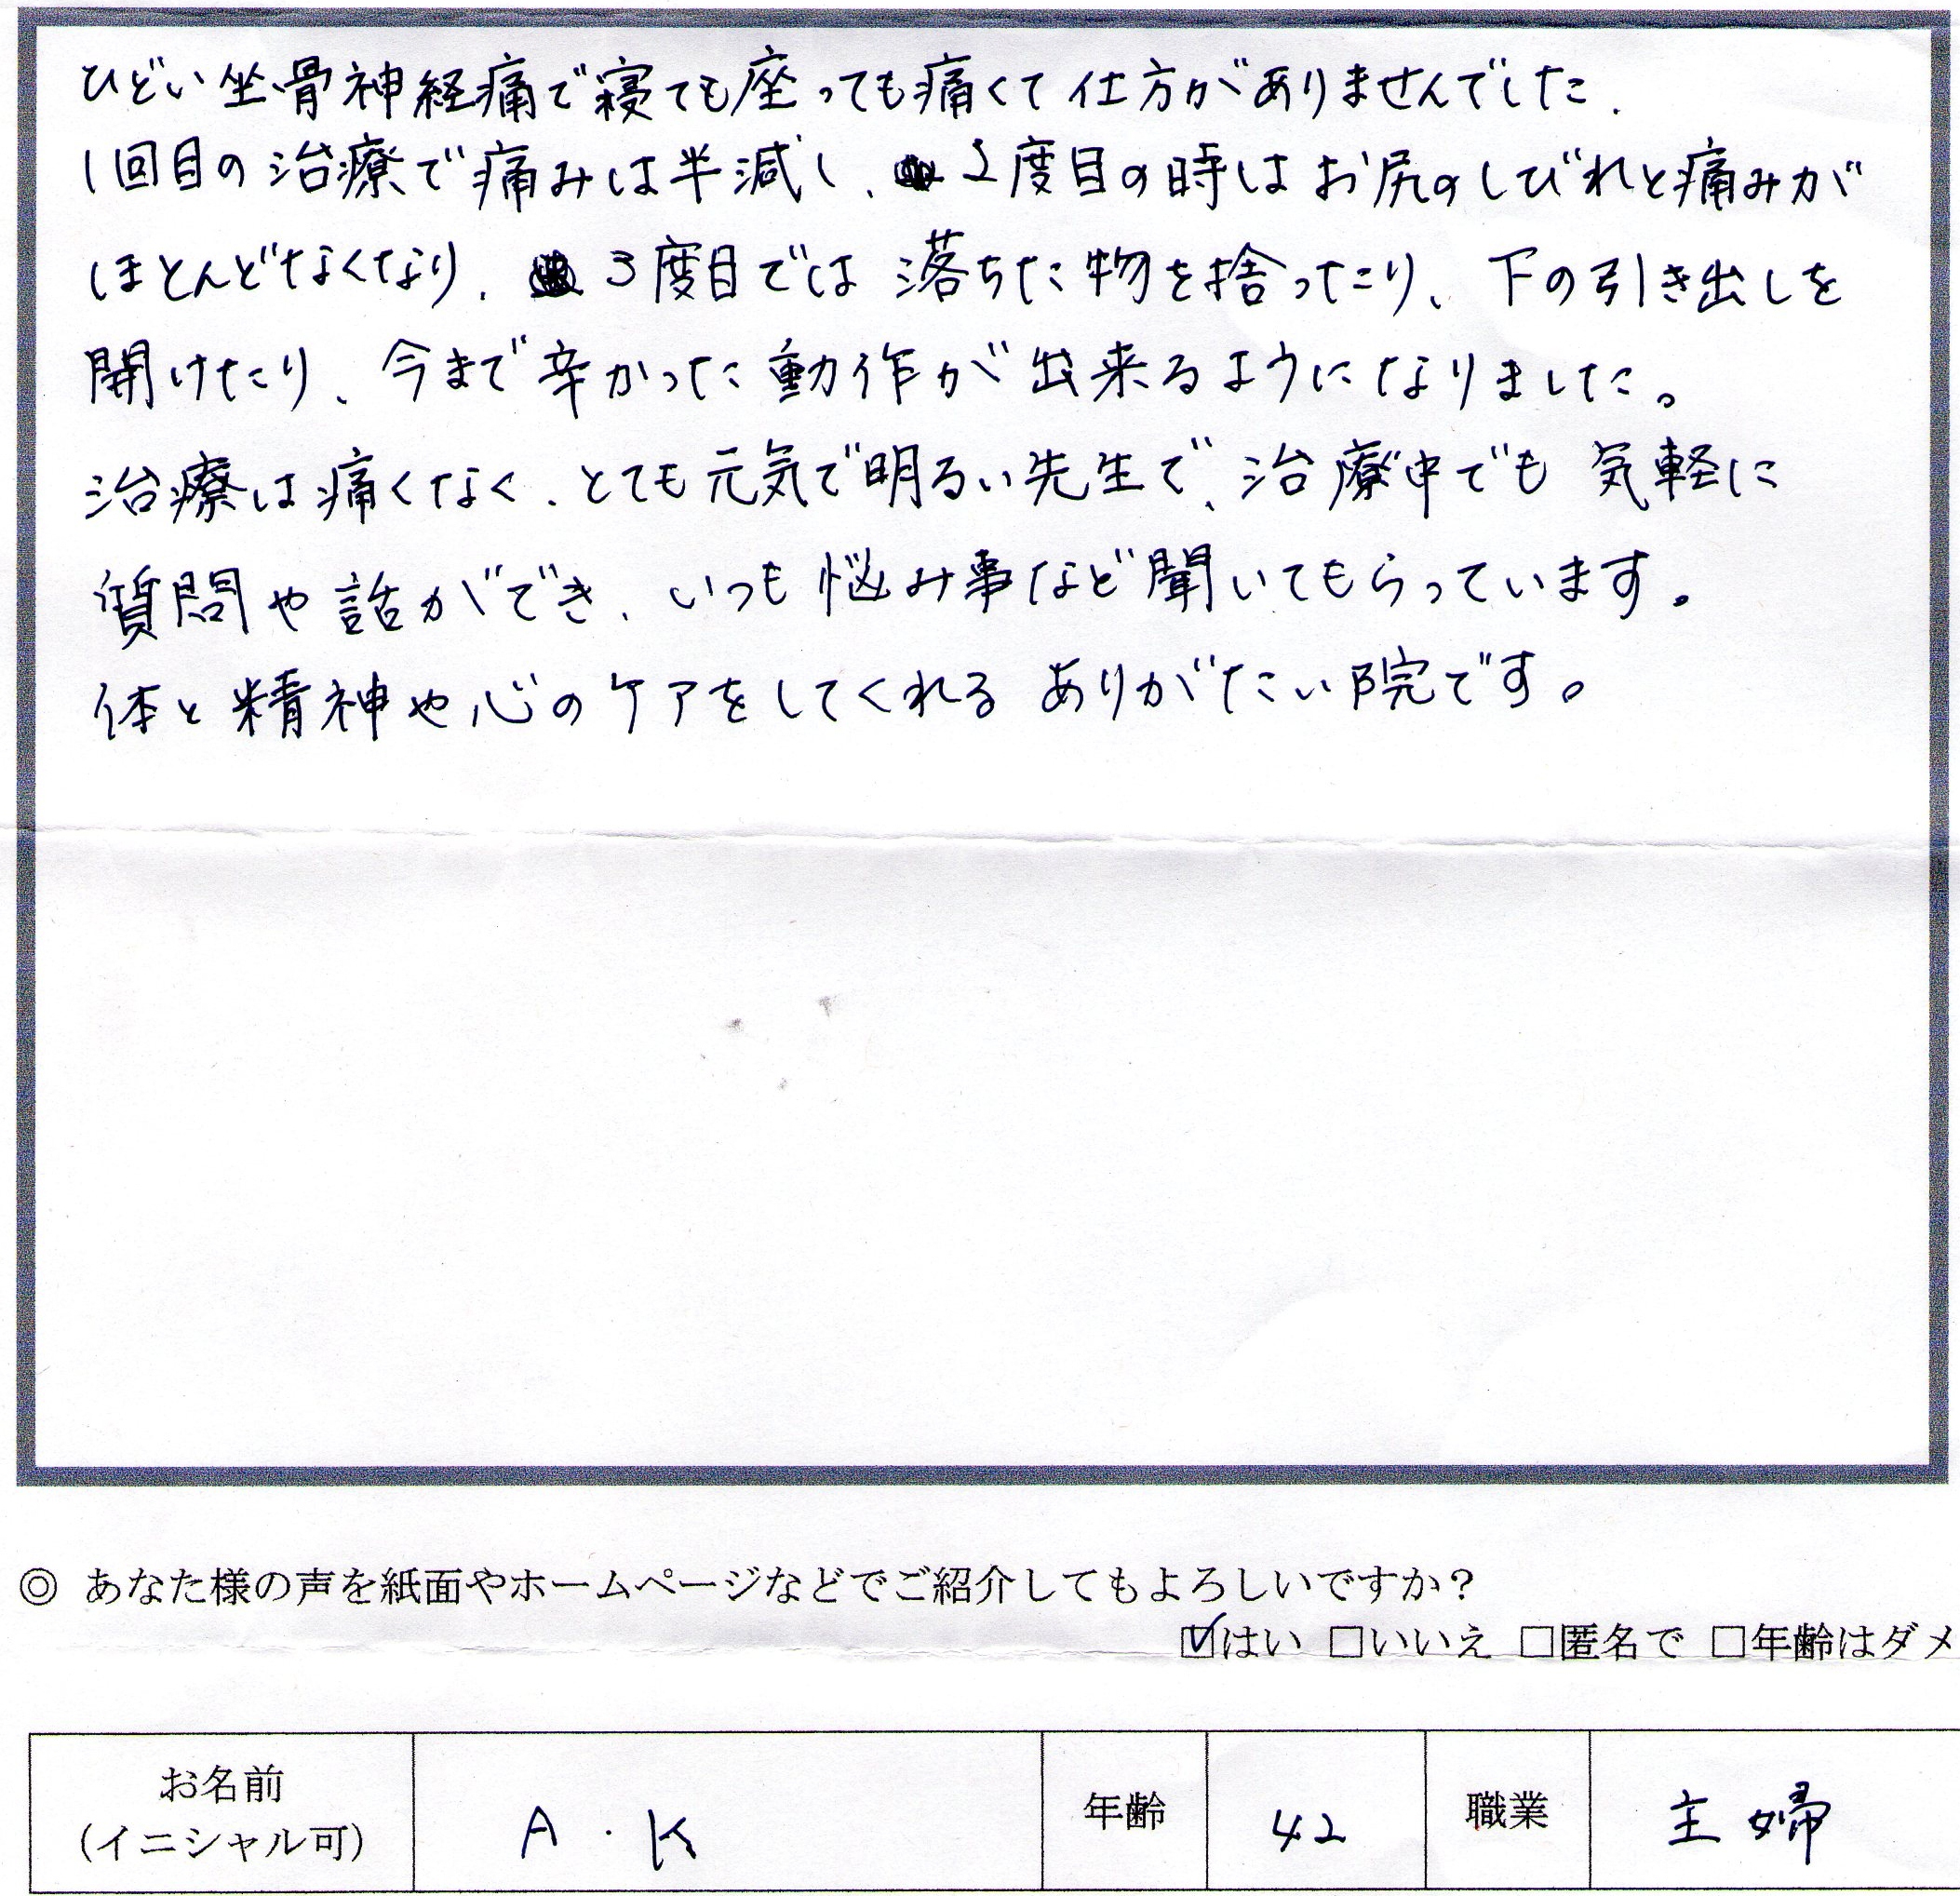 ひどい坐骨神経痛で寝ても座っても痛くて仕方がありませんでした.
1回目の治療で痛みは半減し、2度目の時はお尻のしびれと痛みが
ほとんどなくなり、3度目では落ちた物を捨ったり、下の引き出しを
開けたり、今まで辛かった動作が出来るようになりました。
治療は痛くなく、とても元気で明るい先生で、治療中でも気軽に
質問や話ができ、いつも悩み事など聞いてもらっています。
体と精神や心のケアをしてくれるありがたい院です。
◎ あなた様の声を紙面やホームページなどでご紹介してもよろしいですか？
☑はい □いいえ □匿名で □年齢はダメ
お名前
(イニシャル可)
A・K
年齢
42
職業
主婦